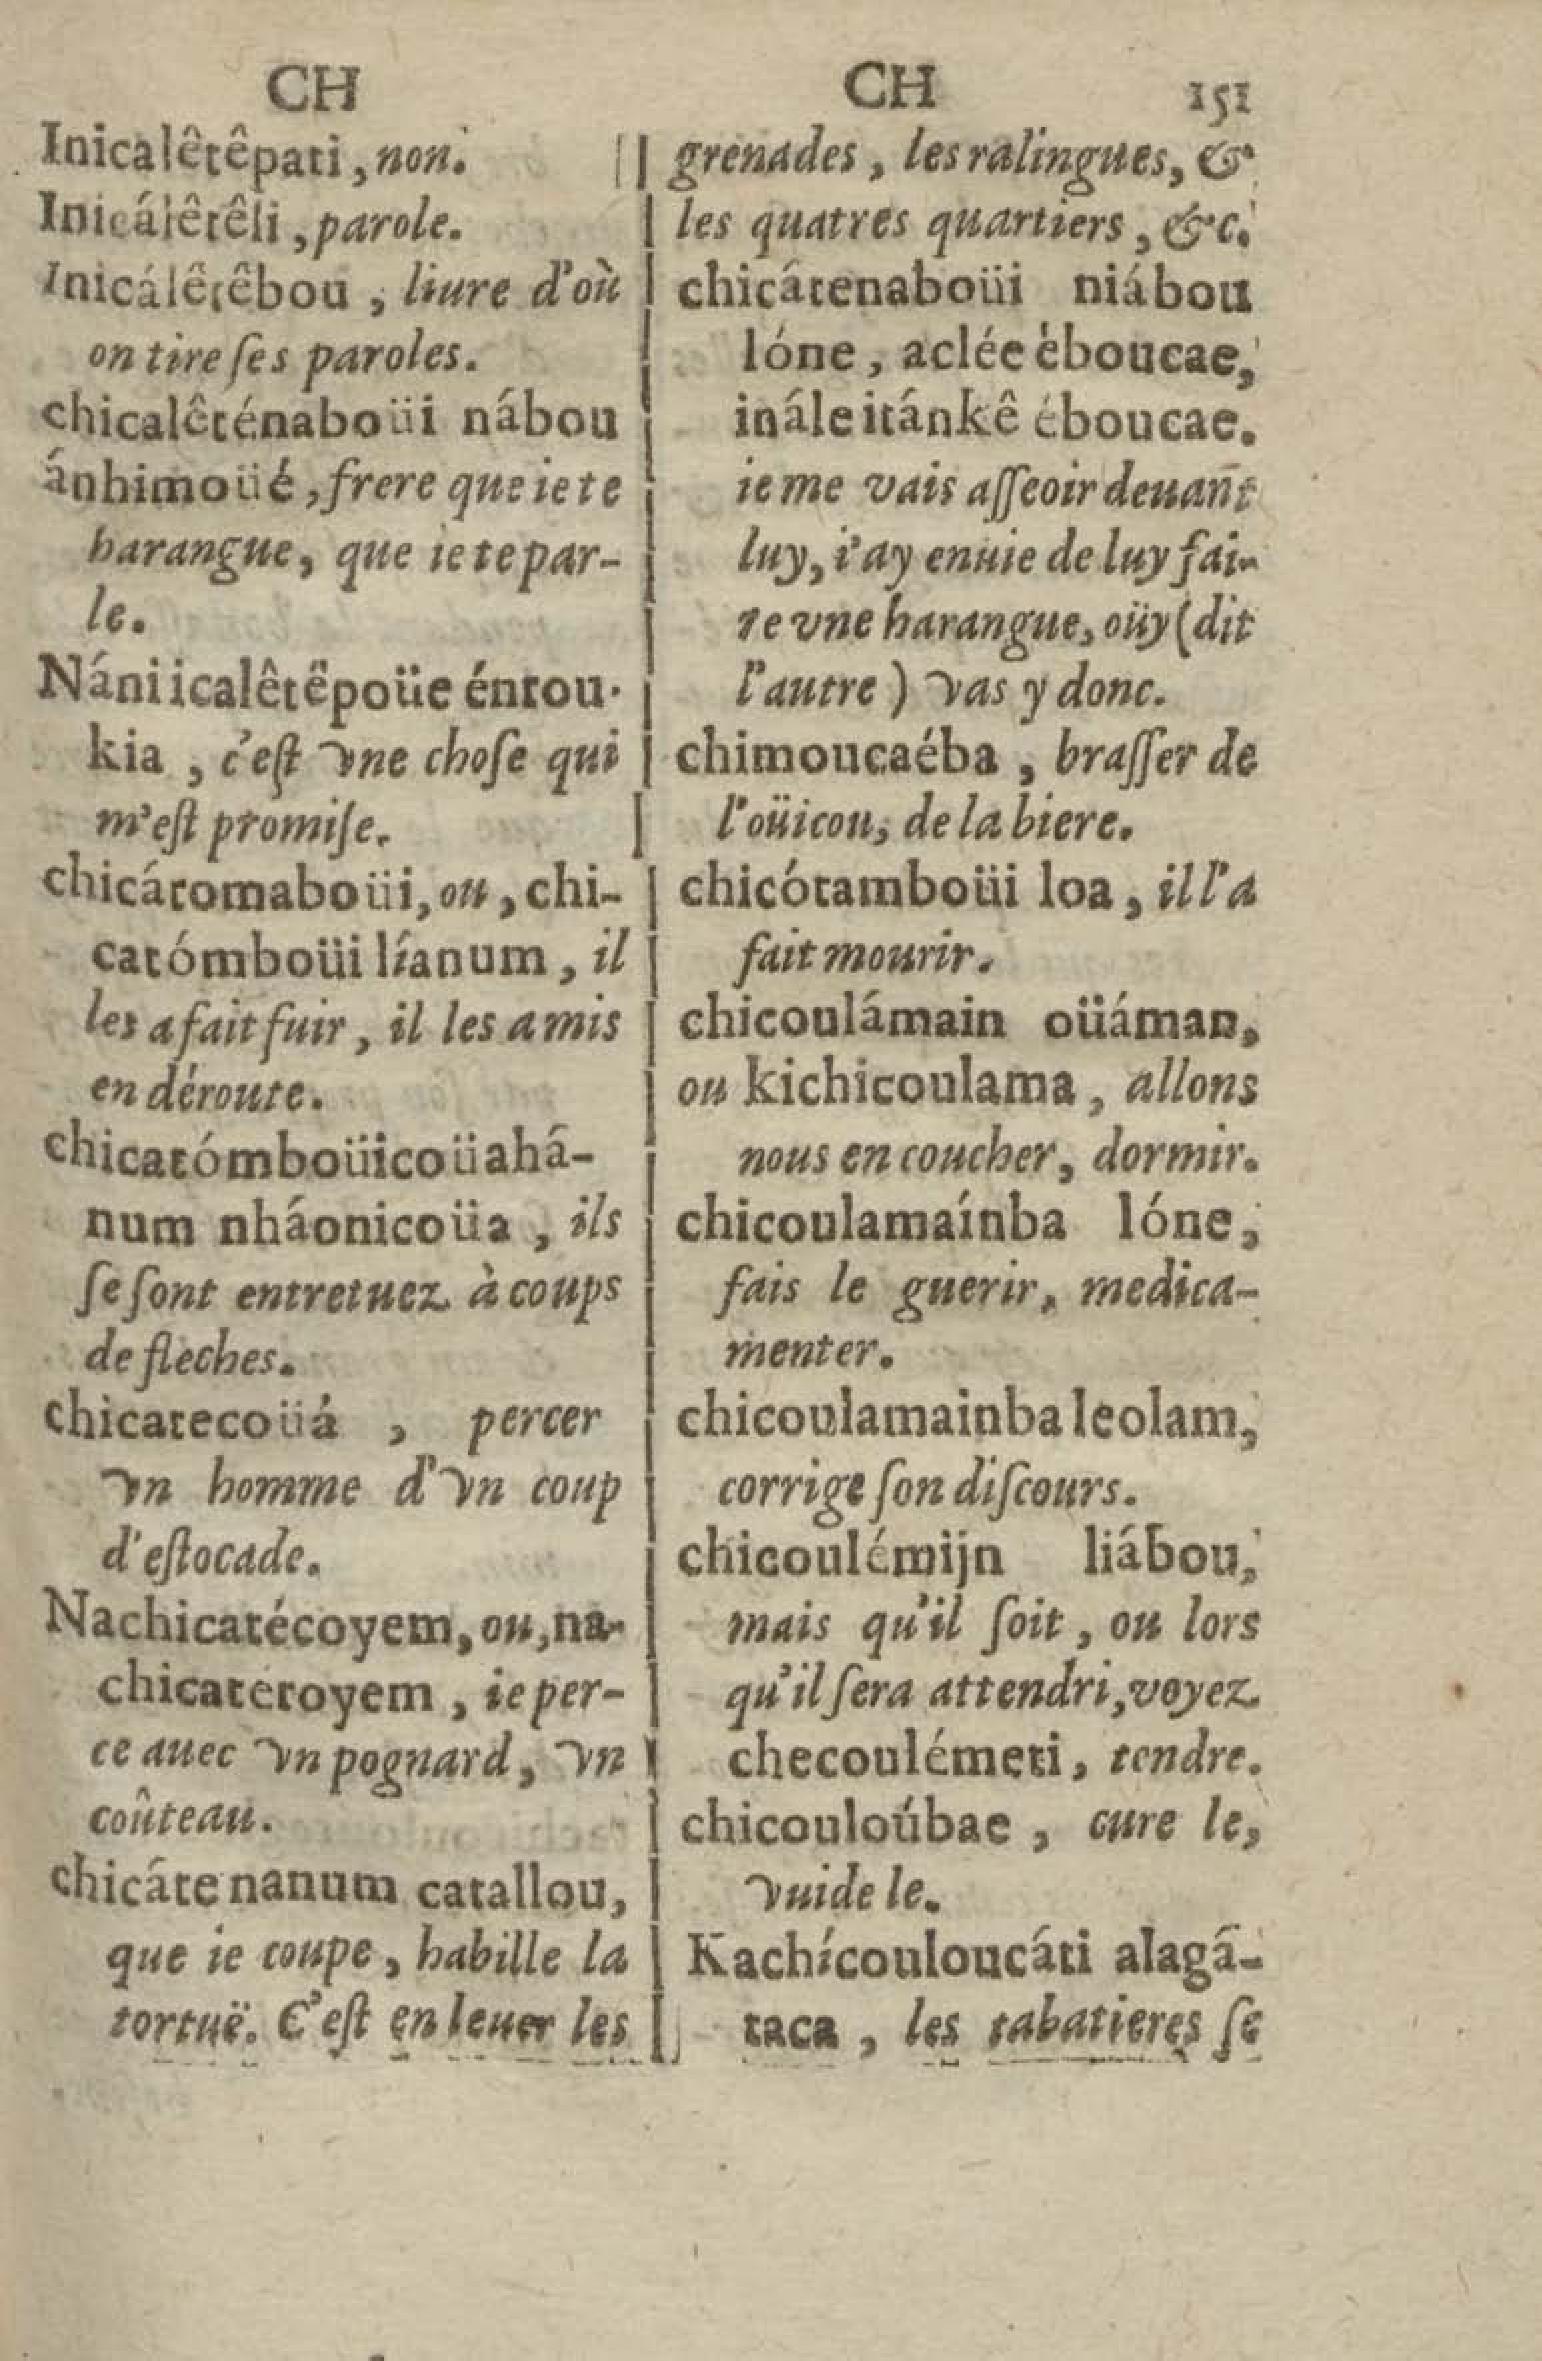 CH
Inicalêtêpati, non.
Inicálêtêli, parole.
Inicálêtêbou, liure d'où
on tire ſes paroles.
chicalêténaboüi nábou
ánhimoüé, frere que ie te
harangue, que ie te par-
le.
Nániicalêtêpoüe éntou-
kia, c'eſt vne choſe qui
m'eſt promiſe.
chicátomaboüi, ou, chi-
catómboüi líanum, il
les a fait fuir, il les a mis
en déroute.
chicatómboüicoüahá-
num nháonicoüa, ils
ſe ſont entretuez à coups
de fleches.
chicatecoüá, percer
vn homme d'vn coup
d'eſtocade.
Nachicatécoyem, ou, na-
chicateroyem, ie per-
ce auec vn pognard, vn
coûteau.
chicáte nanum catallou,
que ie coupe, habille la
tortuë. C'eſt enleuer les
CH 151
grenades, les ralingues, &
les quatres quartiers, &c.
chicátenaboüi niábou
lóne, aclée éboucae,
inále itánkê éboucae.
ie me vais aſſeoir deuant
luy, i'ay enuie de luy fai-
re vne harangue, oüy (dit
l'autre) vas y donc.
chimoucaéba, braſſer de
l'oüicou, de la biere.
chicótamboüi loa, il l'a
fait mourir.
chicoulámain oüáman,
ou kichicoulama, allons
nous en coucher, dormir.
chicoulamaínba lóne,
fais le guerir, medica-
menter.
chicoulamainba leolam,
corrige ſon diſcours.
chicoulémijn liábou,
mais qu'il ſoit, ou lors
qu'il ſera attendri, voyez
checoulémeti, tendre.
chicouloúbae, cure le,
vuide le.
Kachícouloucáti alagá-
taca, les tabatieres ſe